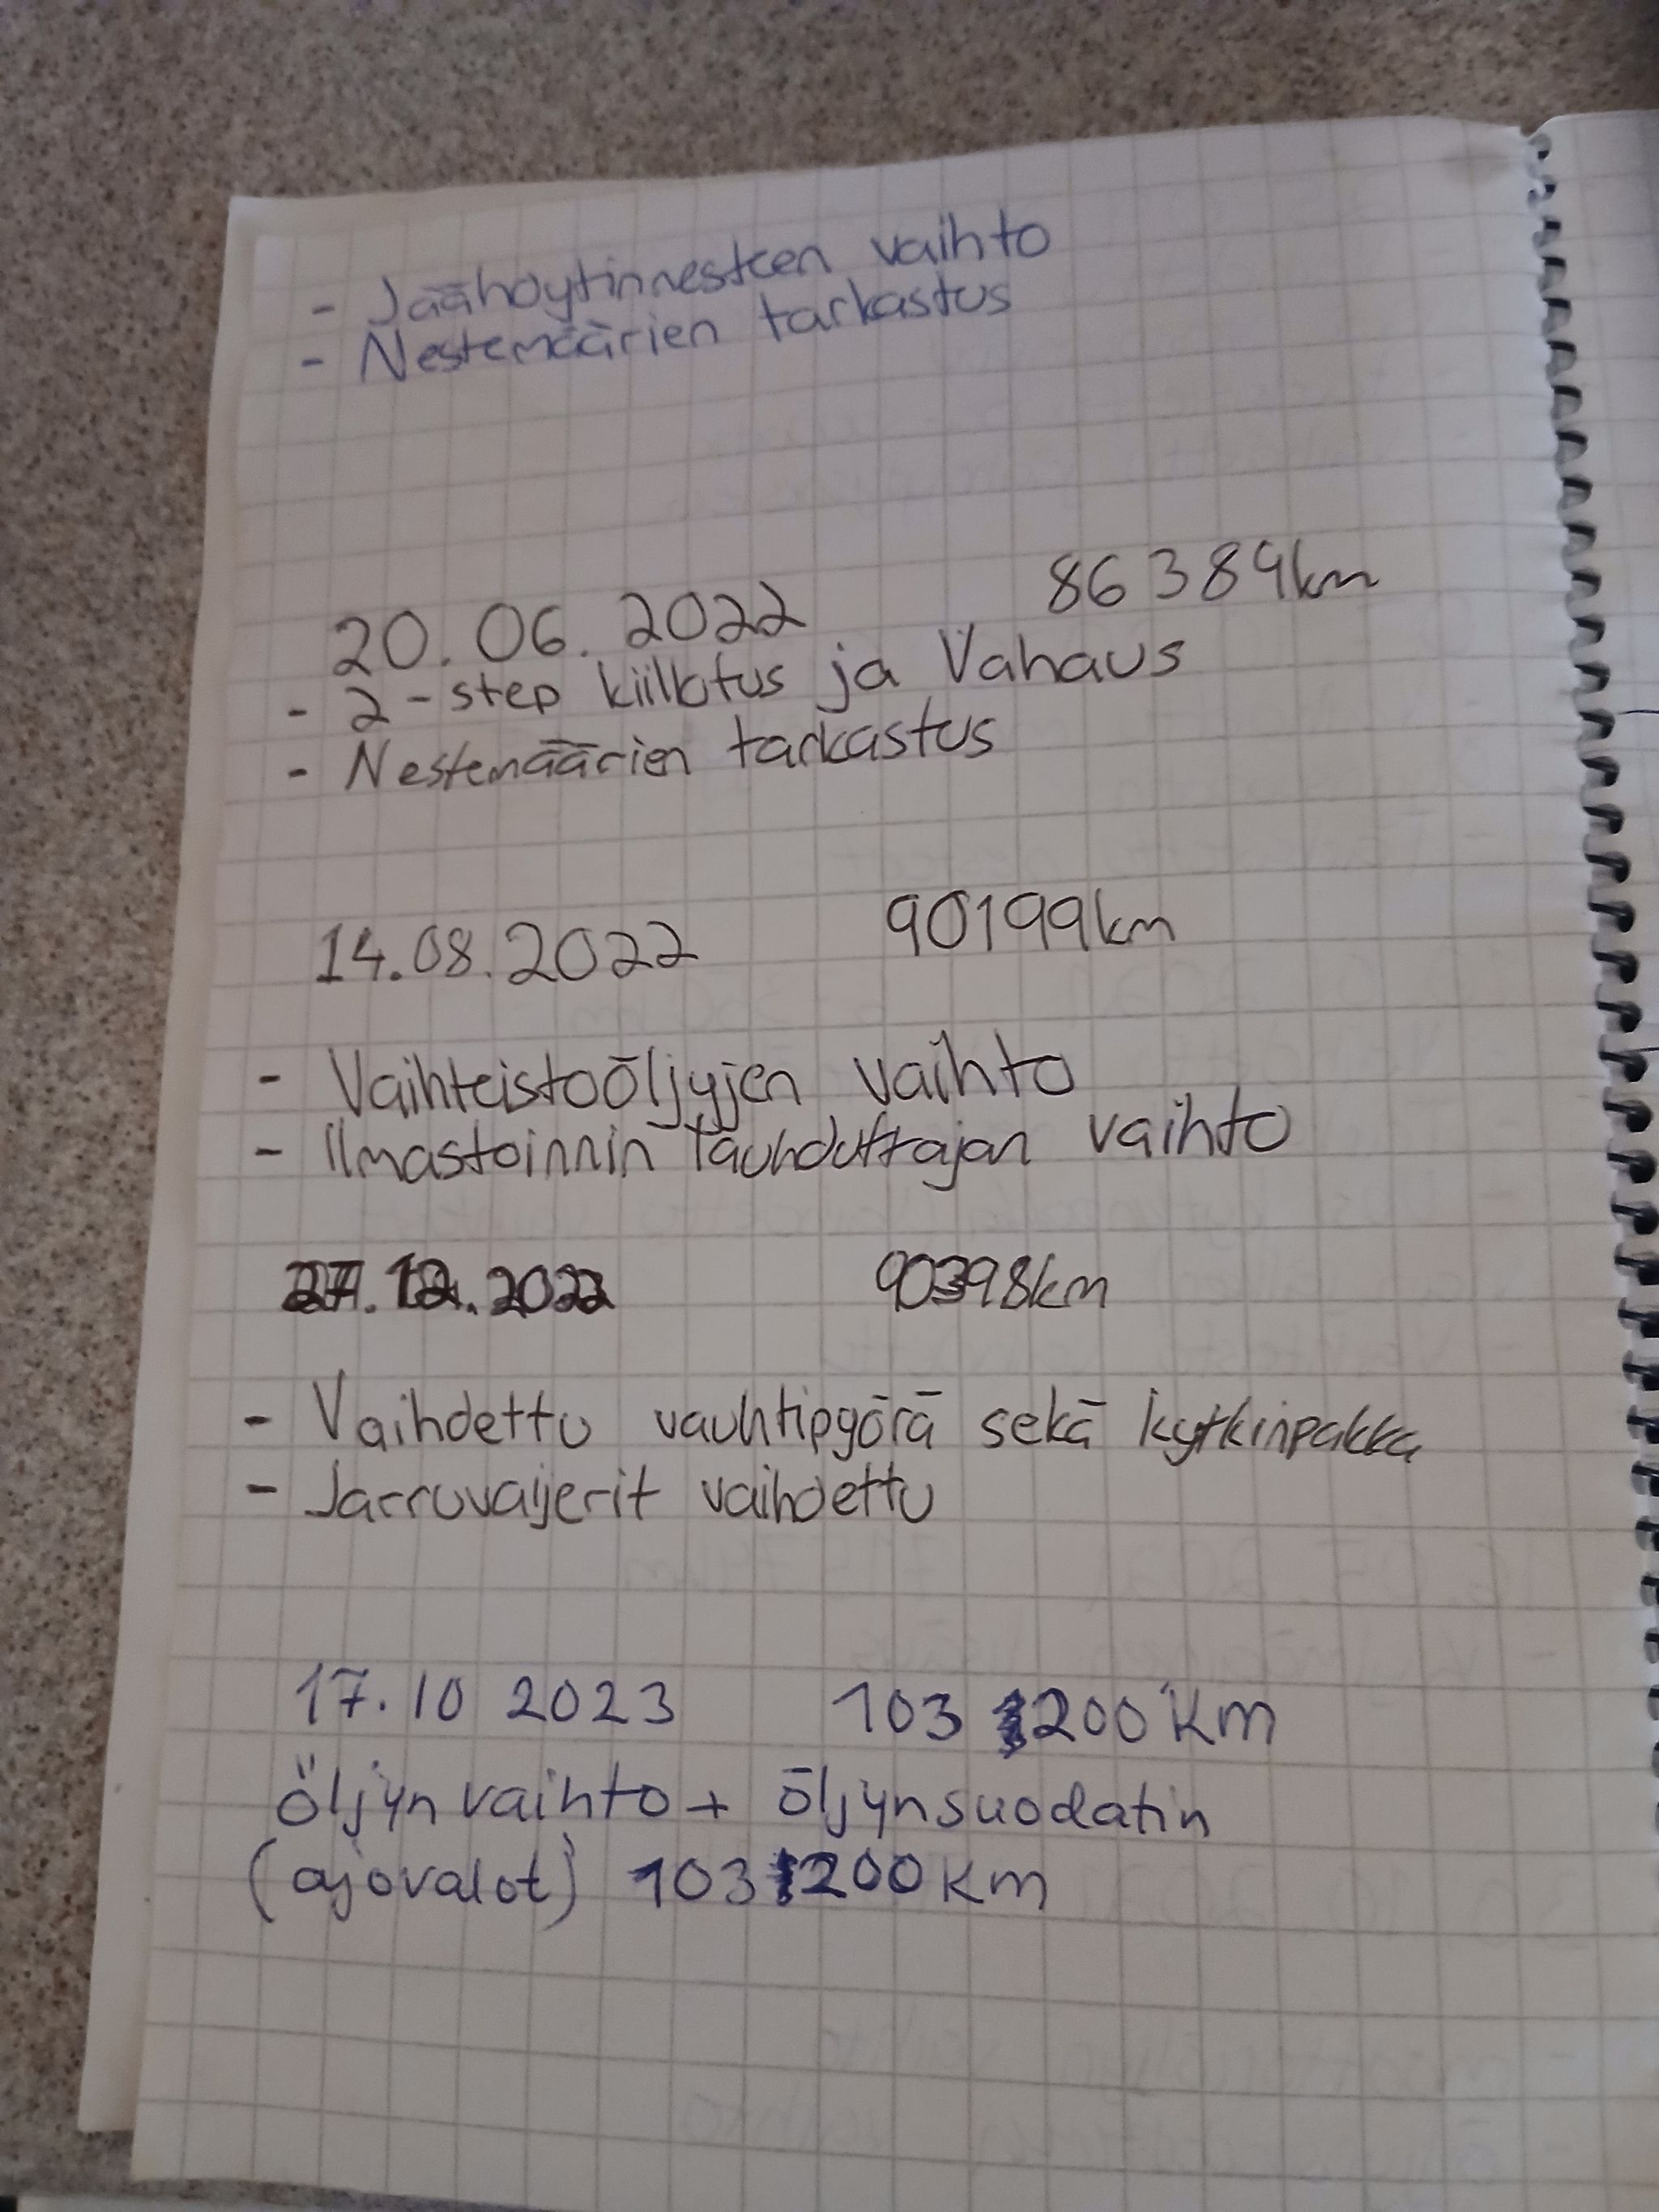 - Jäähdytinnesteen vaihto
- Nestemäärien tarkastus
20.06.2022 86389km
- 2-step kiillotus ja Vahaus
- Nestemäärien tarkastus
14.08.2022 90199km
- Vaihteistoöljyjen vaihto
- Ilmastoinnin lauhduttajan vaihto
90398km
- Vaihdettu vauhtipyörä sekä kytkinpakka
- Jarruvaijerit vaihdettu
17.10 2023 103 200 Km
Öljyn vaihto + öljynsuodatin
(ajovalot) 103 200 Km